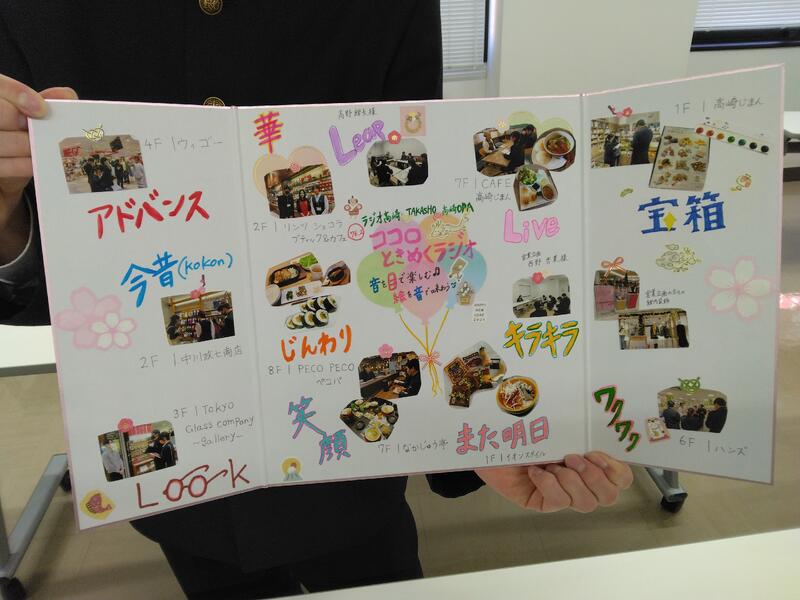 4F | ウィゴー
アドバンス
今昔(kokon)
2F | 中川政七商店
3F | Tokyo
Glass company
~gallery~
LOOK
華
2F | リンツ ショコラ
ブティック&カフェ
Leap
7F | CAFE
高崎じまん
ラジオ高崎 TAKASHO 高崎OPA
ココロ
ときめくラジオ
音を目で楽しむ♫
絵を音で味わう
HAPPY
NEW
YEAR
Live
営業企画
じんわり
8F | PECO PECO
ペコパ
キラキラ
笑顔
7F | なかじゅう亭
また明日
1F | イオンスタイル
1F | 高崎じまん
宝箱
ワクワク
6F | ハンズ